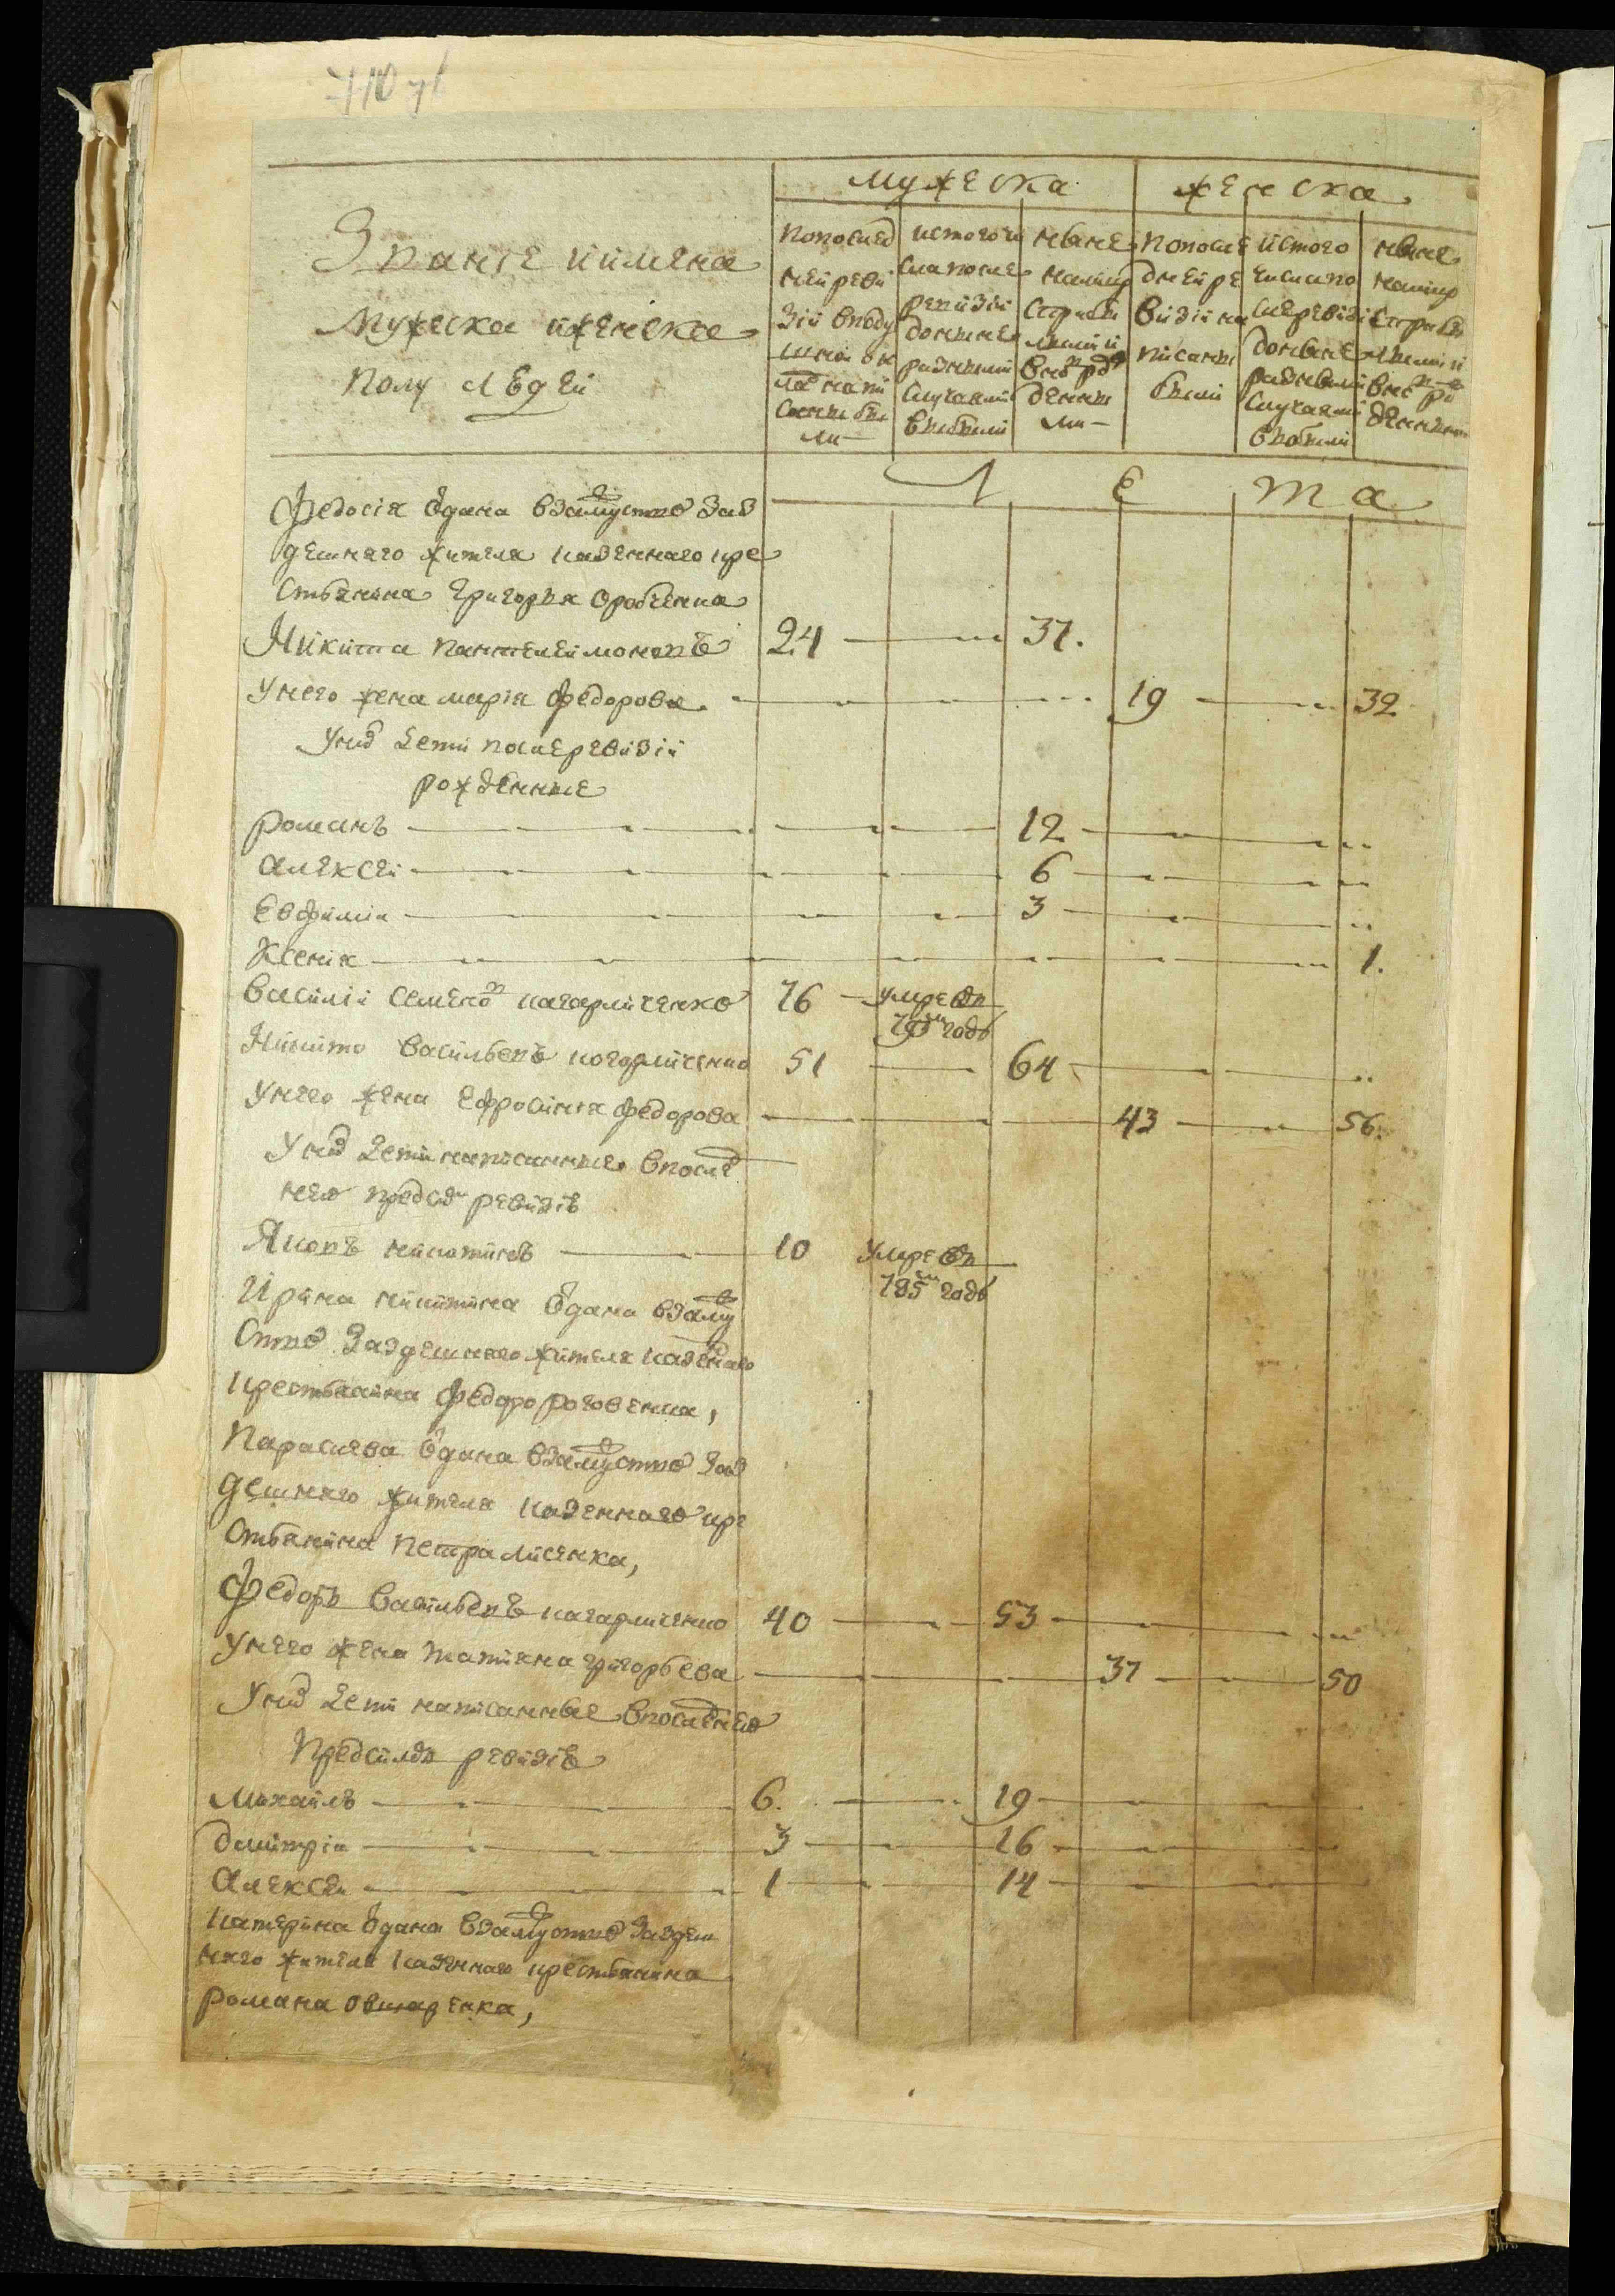 710 71
мужеска женска
Званіе и имена
мужеска и женска
полу людей
по послед
ней реви
зіи в поду
шной ок
лад напи
санны бы
ли
из того чи
сла после
ревизіи
до ныне
разными
случаями
выбыли
ныне
на лицо
с прибы
лыми и
вновь рож
денны
ми
по после
дней ре
визіи на
писаны
были
из того
числа по
сле ревизіи
до ныне
разными
случаями
выбыли
ныне
на лицо
с прибы
лыми и
вновь ро
жденными
Л е т а
Федосія одана взамуство за з
дешнего жителя казенного кре
стьянина Григорья
Никита Пантелеймоновъ 24 37.
У него жена Марія Федорова 19 32
У них дети после ревизіи
рожденные
Романъ 12
Алексей 6
Евфимій 3
Ксенія 1.
Василій Семенов Кагарличенко 76 умре въ
795м годе
Никита Васильевъ Кагарличенко 51 64
У него жена Ефросинія Федорова 43 56.
У них дети написанные в послед
ней пред сим ревизіе
Яковъ Никитинъ 10 умре въ
785м годе
Ирина Никитина одана взаму
ство за здешнего жителя казенного
крестьянина Федора Роговенка,
Параскева одана взамуство за з
дешнего жителя казенного кре
стьянина Петра Лисенка,
Федоръ Васильевъ Кагарличенко 40 53
У него жена Татияна Григорьева 37 50
У них дети написанные в последней
пред симъ ревизіе
Михаилъ 6. 19
Дмитрій 3 16
Алексей 1 14
Катерина одана взамуство за здеш
него жителя казенного крестьянина
Романа Овчаренка,